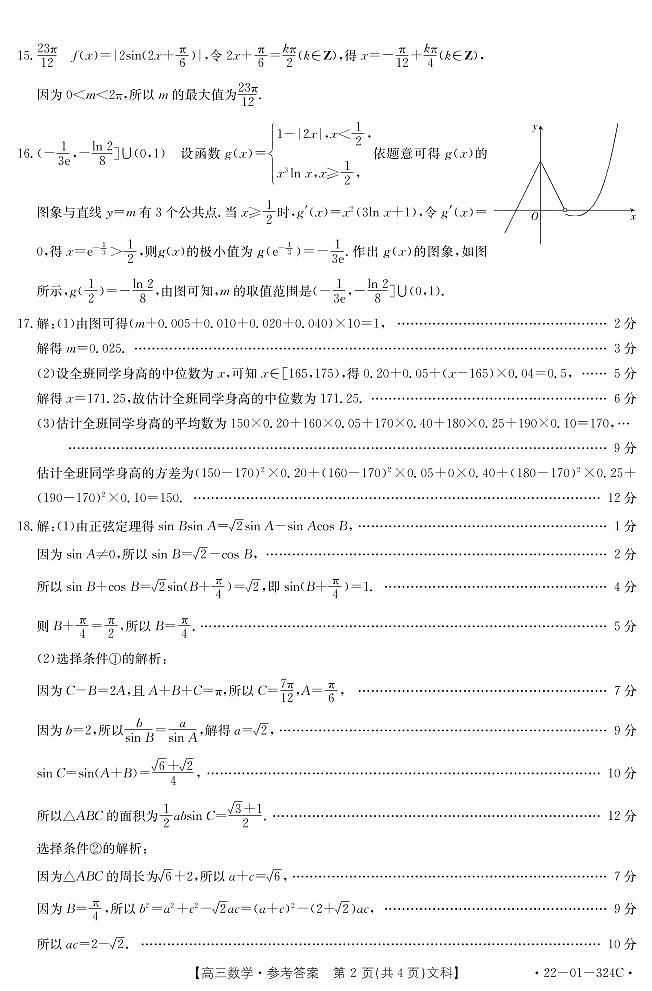 15. 23π/12 f(x)=|2sin(2x+π/6)|,令 2x+π/6=kπ/2(k∈Z),得 x=-π/12+kπ/4(k∈Z),
因为 0<m<2π,所以 m 的最大值为23π/12.
16. (-1/3e,-ln 2/8]∪(0,1) 设函数 g(x)={1-|2x|,x<1/2, x³ln x,x≥1/2, 依题意可得 g(x)的
图象与直线 y=m 有 3 个公共点. 当 x≥1/2时,g′(x)=x²(3ln x+1),令 g′(x)=
0,得 x=e^(-1/3)>1/2,则g(x)的极小值为 g(e^(-1/3))=-1/3e. 作出 g(x)的图象,如图
所示,g(1/2)=-ln 2/8,由图可知,m 的取值范围是(-1/3e,-ln 2/8]∪(0,1).
y
O
x
17. 解:(1)由图可得(m+0.005+0.010+0.020+0.040)×10=1, ………… 2 分
解得 m=0.025. ………… 3 分
(2)设全班同学身高的中位数为 x,可知 x∈[165,175),得 0.20+0.05+(x-165)×0.04=0.5, …… 5 分
解得 x=171.25,故估计全班同学身高的中位数为 171.25. ………… 6 分
(3)估计全班同学身高的平均数为 150×0.20+160×0.05+170×0.40+180×0.25+190×0.10=170,…
………… 9 分
估计全班同学身高的方差为(150-170)²×0.20+(160-170)²×0.05+0×0.40+(180-170)²×0.25+
(190-170)²×0.10=150. ………… 12 分
18. 解:(1)由正弦定理得 sin Bsin A=√2sin A-sin Acos B, ………… 1 分
因为 sin A≠0,所以 sin B=√2-cos B, ………… 2 分
所以 sin B+cos B=√2sin(B+π/4)=√2,即 sin(B+π/4)=1. ………… 4 分
则 B+π/4=π/2,所以 B=π/4. ………… 5 分
(2)选择条件①的解析:
因为 C-B=2A,且 A+B+C=π,所以 C=7π/12,A=π/6, ………… 7 分
因为 b=2,所以b/sin B=a/sin A,解得 a=√2, ………… 9 分
sin C=sin(A+B)=(√6+√2)/4, ………… 10 分
所以△ABC 的面积为1/2absin C=(√3+1)/2. ………… 12 分
选择条件②的解析:
因为△ABC 的周长为√6+2,所以 a+c=√6, ………… 7 分
因为 B=π/4,所以 b²=a²+c²-√2ac=(a+c)²-(2+√2)ac, ………… 9 分
所以 ac=2-√2. ………… 10 分
【高三数学·参考答案 第 2 页(共 4 页)文科】 ·22-01-324C·